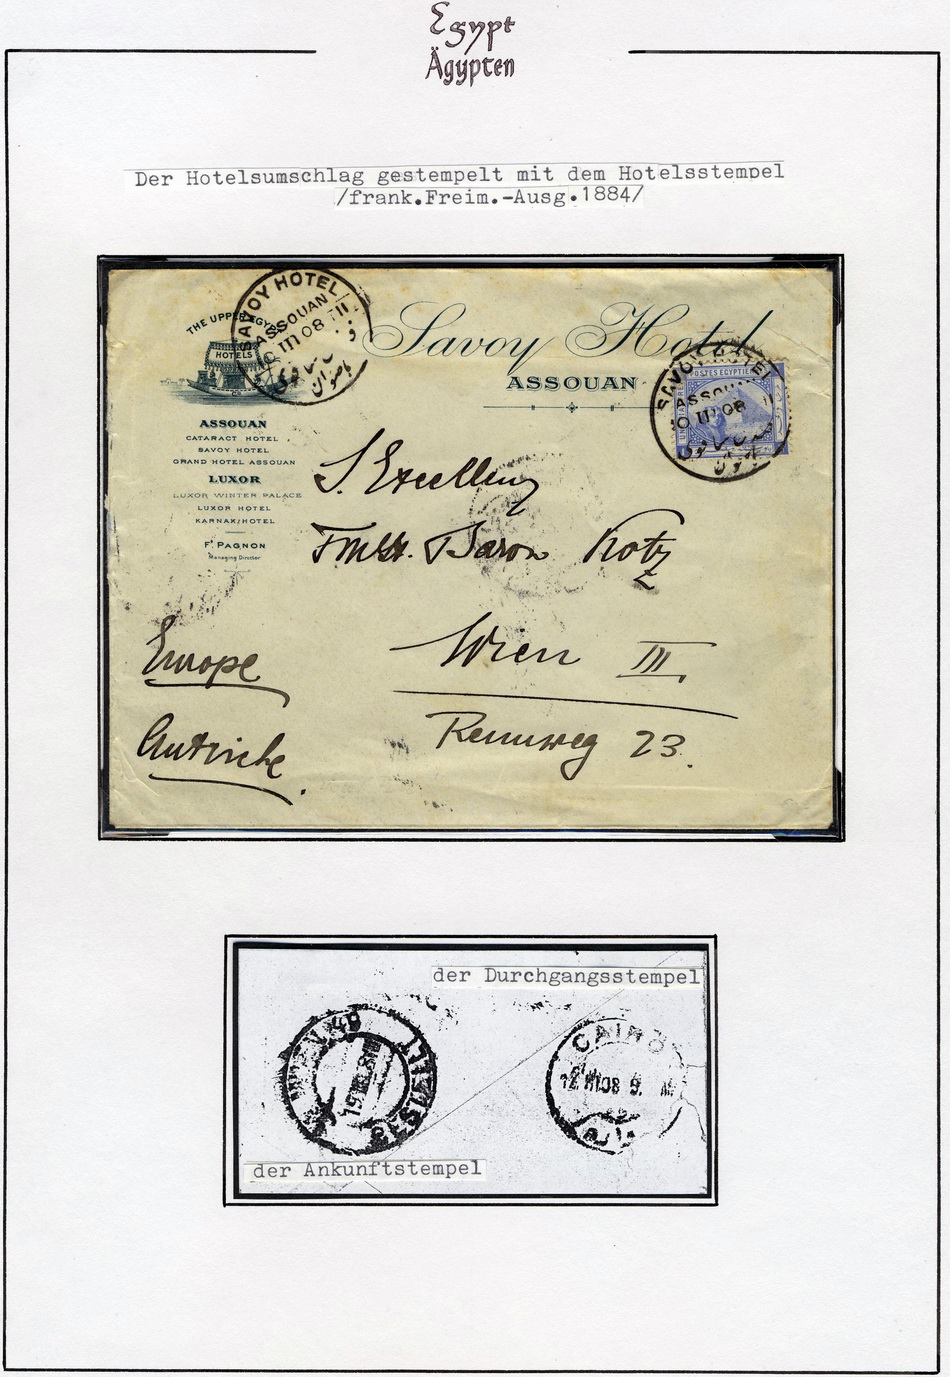 Egypt
Ägypten
Der Hotelsumschlag gestempelt mit dem Hotelsstempel
/frank.Freim.-Ausg.1884/
SAVOY HOTEL
ASSOUAN
III 08 II
THE UPPER EGYPT
HOTELS
Savoy Hotel
ASSOUAN
SAVOY HOTEL
ASSOUAN
III 08 II
POSTES EGYPTIE
ASSOUAN
CATARACT HOTEL
SAVOY HOTEL
GRAND HOTEL ASSOUAN
LUXOR
LUXOR WINTER PALACE
LUXOR HOTEL
KARNAK HOTEL
F. PAGNON
Managing Director
S. Excellenz
Baron Kotz
Wien III.
Rennweg 23.
Europe
Autriche.
der Durchgangsstempel
CAIRO
12 III 08 9.
der Ankunftstempel